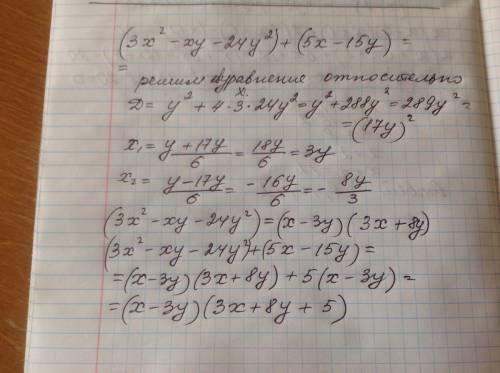 (3x² - xy - 24y²) + (5x - 15y) =
=
решим уравнение относительно
x.
D = y² + 4·3·24y² = y² + 288y² = 289y² =
= (17y)²
x₁ = (y + 17y)/6 = 18y/6 = 3y
x₂ = (y - 17y)/6 = - 16y/6 = - 8y/3
(3x² - xy - 24y²) = (x - 3y)(3x + 8y)
(3x² - xy - 24y²) + (5x - 15y) =
= (x - 3y)(3x + 8y) + 5(x - 3y) =
= (x - 3y)(3x + 8y + 5)